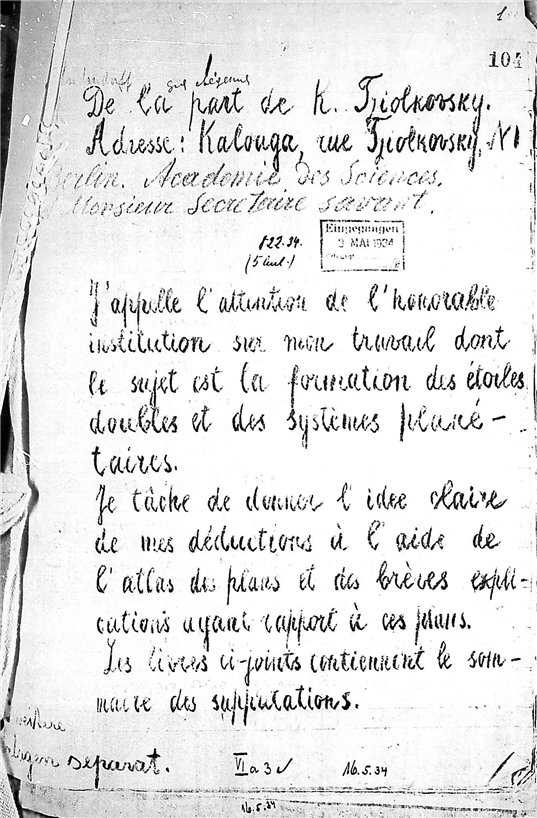 1
104
De la part de K. Tziolkovsky.
Adresse: Kalouga, rue Tziolkovsky, N1
Berlin. Academie des Sciences.
Monsieur Secretaire savant.
822.34.
Eingegangen
3 MAI 1934
J'appelle l'attention de l'honorable
institution sur mon travail dont
le sujet est la formation des étoiles
doubles et des systèmes plané-
taires.
Je tâche de donner l'idee claire
de mes déductions à l'aide de
l'atlas des plans et des brèves expli-
cations ayant rapport à ces plans.
Les livres ci-joints contiennent le som-
maire des supputations.
separat.
VI a 3
16.5.34
16.5.34